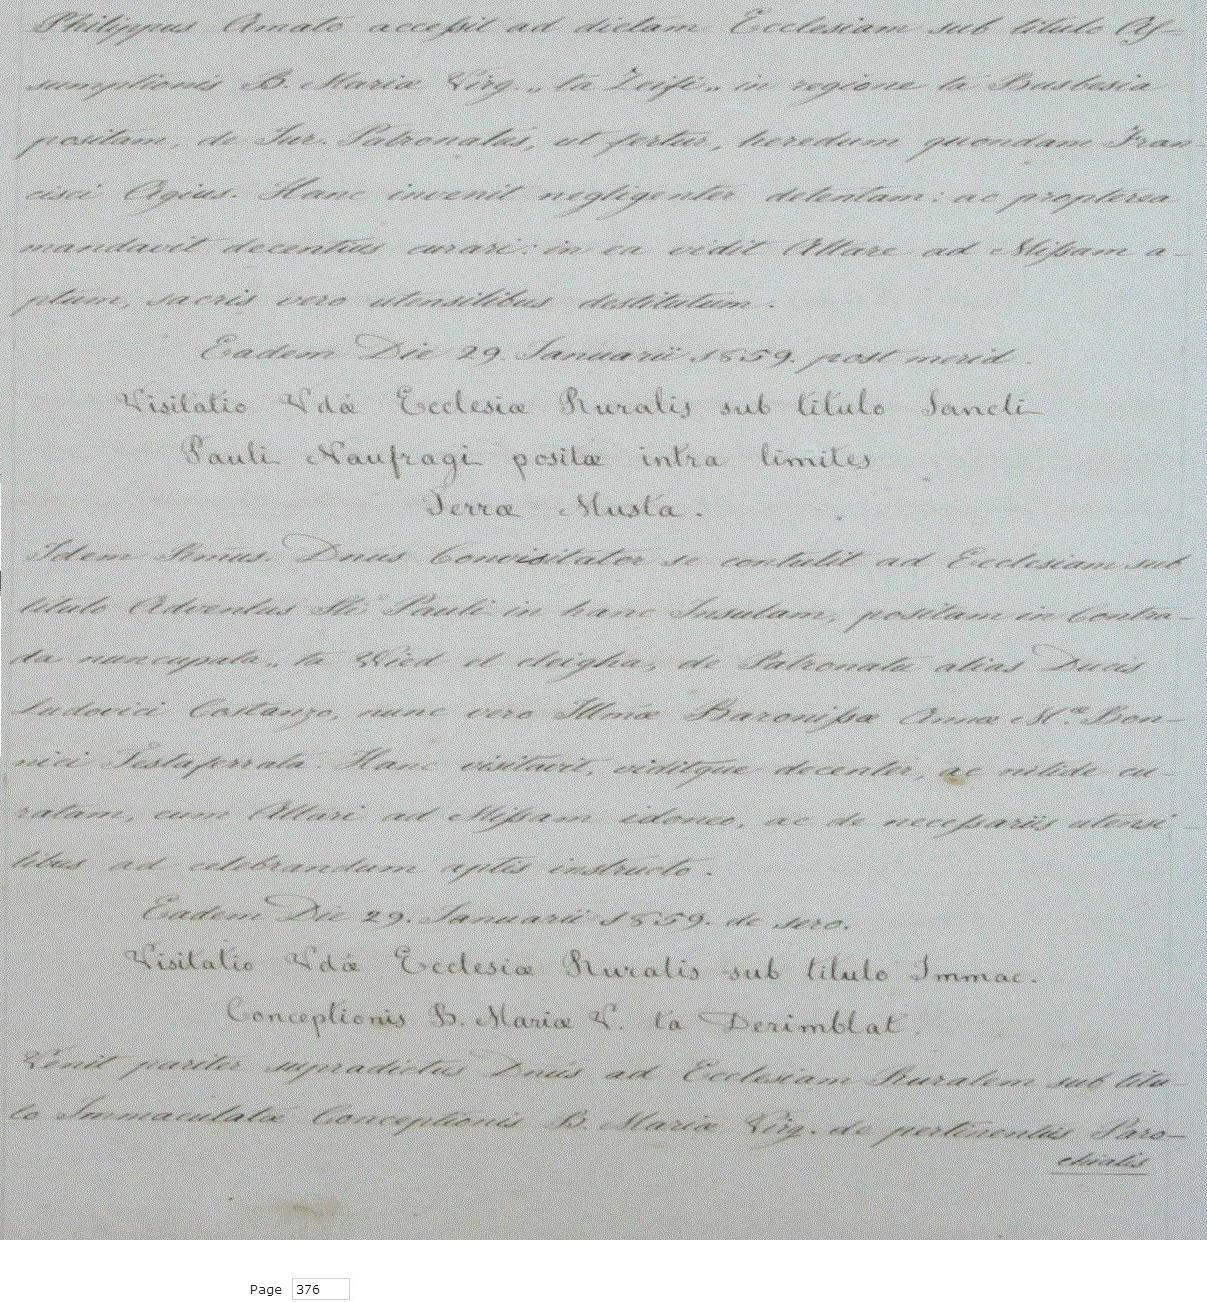 Philippus Amato accessit ad dictam Ecclesiam sub titulo As-
sumptionis B. Mariæ Virg. „ ta Zeifi „ in regione ta Busbesia
positam, de Jur. Patronatus, ut fertur, heredum quondam Fran-
cisci Agius. Hanc invenit negligenter detentam: ac propterea
mandavit decentius curari: in ea vidit Altare ad Missam a-
ptum, sacris vero utensilibus destitutum.
Eadem Die 29. Januarii 1859. post merid.
Visitatio Vdæ Ecclesiæ Ruralis sub titulo Sancti
Pauli Naufragi positæ intra limites
Terræ Musta.
Idem Rmus. Dnus Convisitator se contulit ad Ecclesiam sub
titulo Adventus Sti Pauli in hanc Insulam, positam in Contra-
da nuncupata „ ta Wied el
de Patronatu alias Ducis
Ludovici Costanzo, nunc vero Illmæ Baronissæ Annæ Mæ Bon-
nici Testaferrata. Hanc visitavit, viditque decenter, ac nitide cu-
ratam, cum Altari ad Missam idoneo, ac de necessariis utensi-
libus ad celebrandum aptis instructo.
Eadem Die 29. Januarii 1859. de sero.
Visitatio Vdæ Ecclesiæ Ruralis sub titulo Immac.
Conceptionis B. Mariæ V. ta Derimblat.
Venit pariter supradictus Dnus ad Ecclesiam Ruralem sub titu-
lo Immaculatæ Conceptionis B. Mariæ Virg. de pertinentiis Paro-
chialis
Page 376